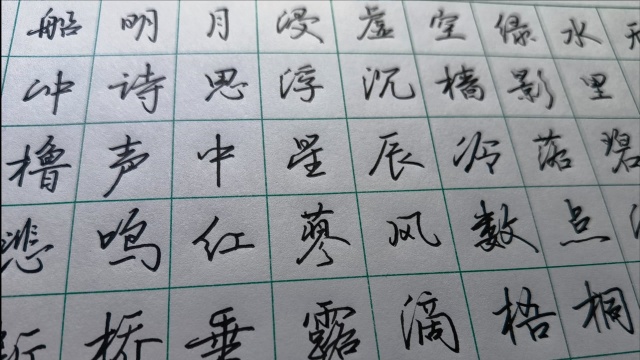 船明月浸虚空绿水
冲诗思浮沉樯影里
橹声中星辰冷落碧
悲鸣红蓼风数点
桥垂露滴梧桐